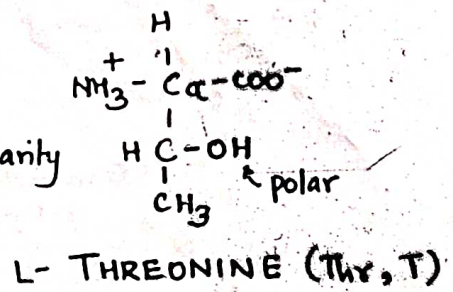 H
+
NH3 - Cα - COO-
arity H C - OH
polar
CH3
L- THREONINE (Thr, T)